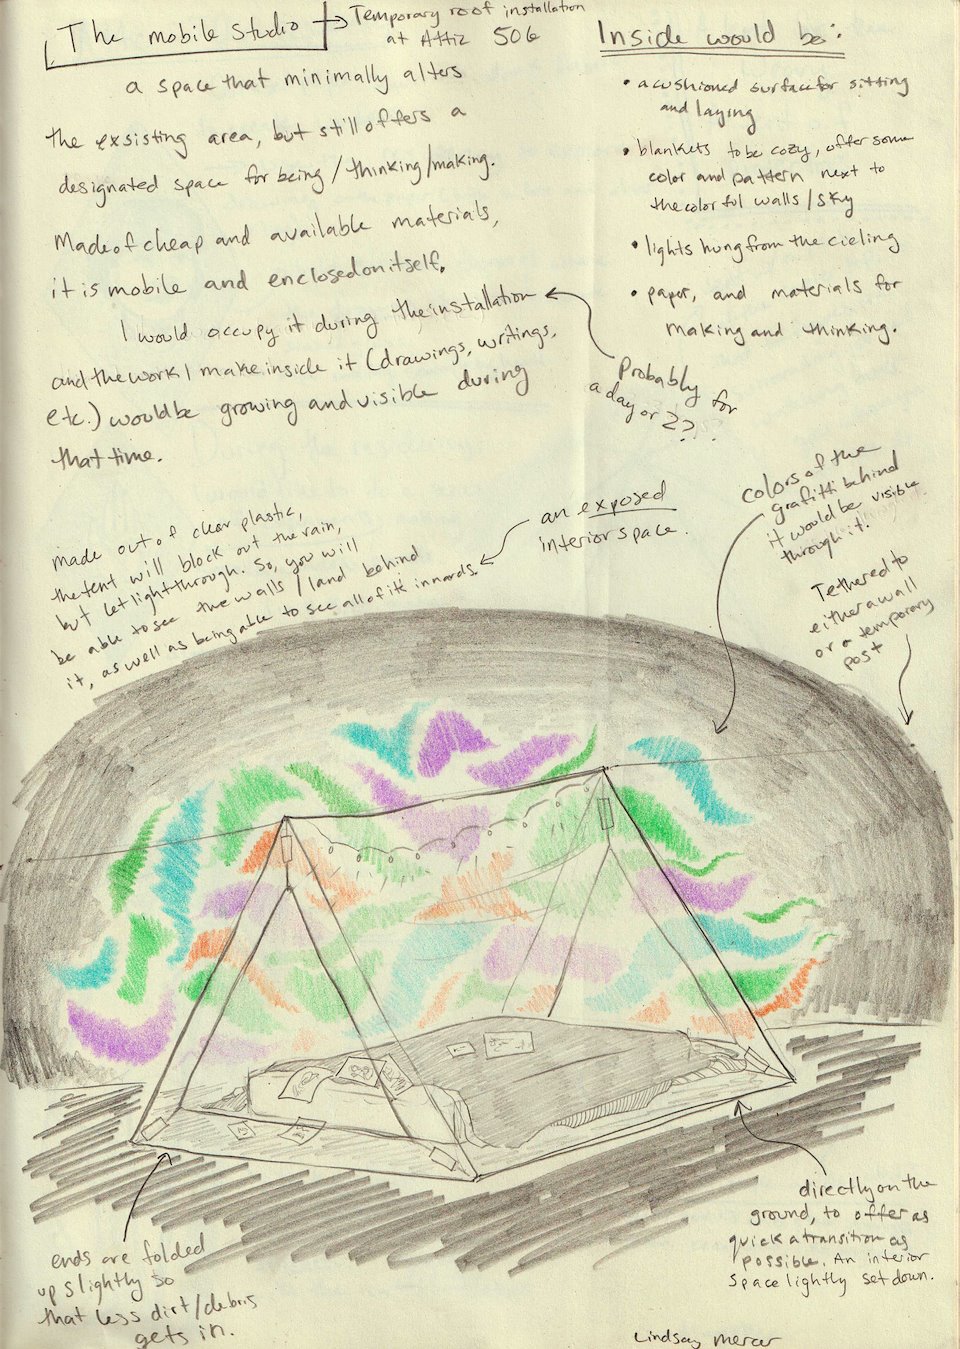 The mobile studio
Temporary roof installation
at Attic 506
a space that minimally alters
the exsisting area, but still offers a
designated space for being/thinking/making.
Made of cheap and available materials,
it is mobile and enclosed on itself.
I would occupy it during the installation
and the work I make inside it (drawings, writings,
etc.) would be growing and visible during
that time.
Probably for
a day or 2??
Inside would be:
• a cushioned surface for sitting
and laying
• blankets to be cozy, offer some
color and pattern next to
the colorful walls/sky
• lights hung from the cieling
• paper, and materials for
making and thinking.
made out of clear plastic,
the tent will block out the rain,
but let light through. So, you will
be able to see the walls/land behind
it, as well as being able to see all of it's innards.
an exposed
interior space.
colors of the
grafitti behind
it would be visible
through it.
Tethered to
either a wall
or a temporary
post
ends are folded
up slightly so
that less dirt/debris
gets in.
directly on the
ground, to offer as
quick a transition as
possible. An interior
space lightly set down.
Lindsay Mercer